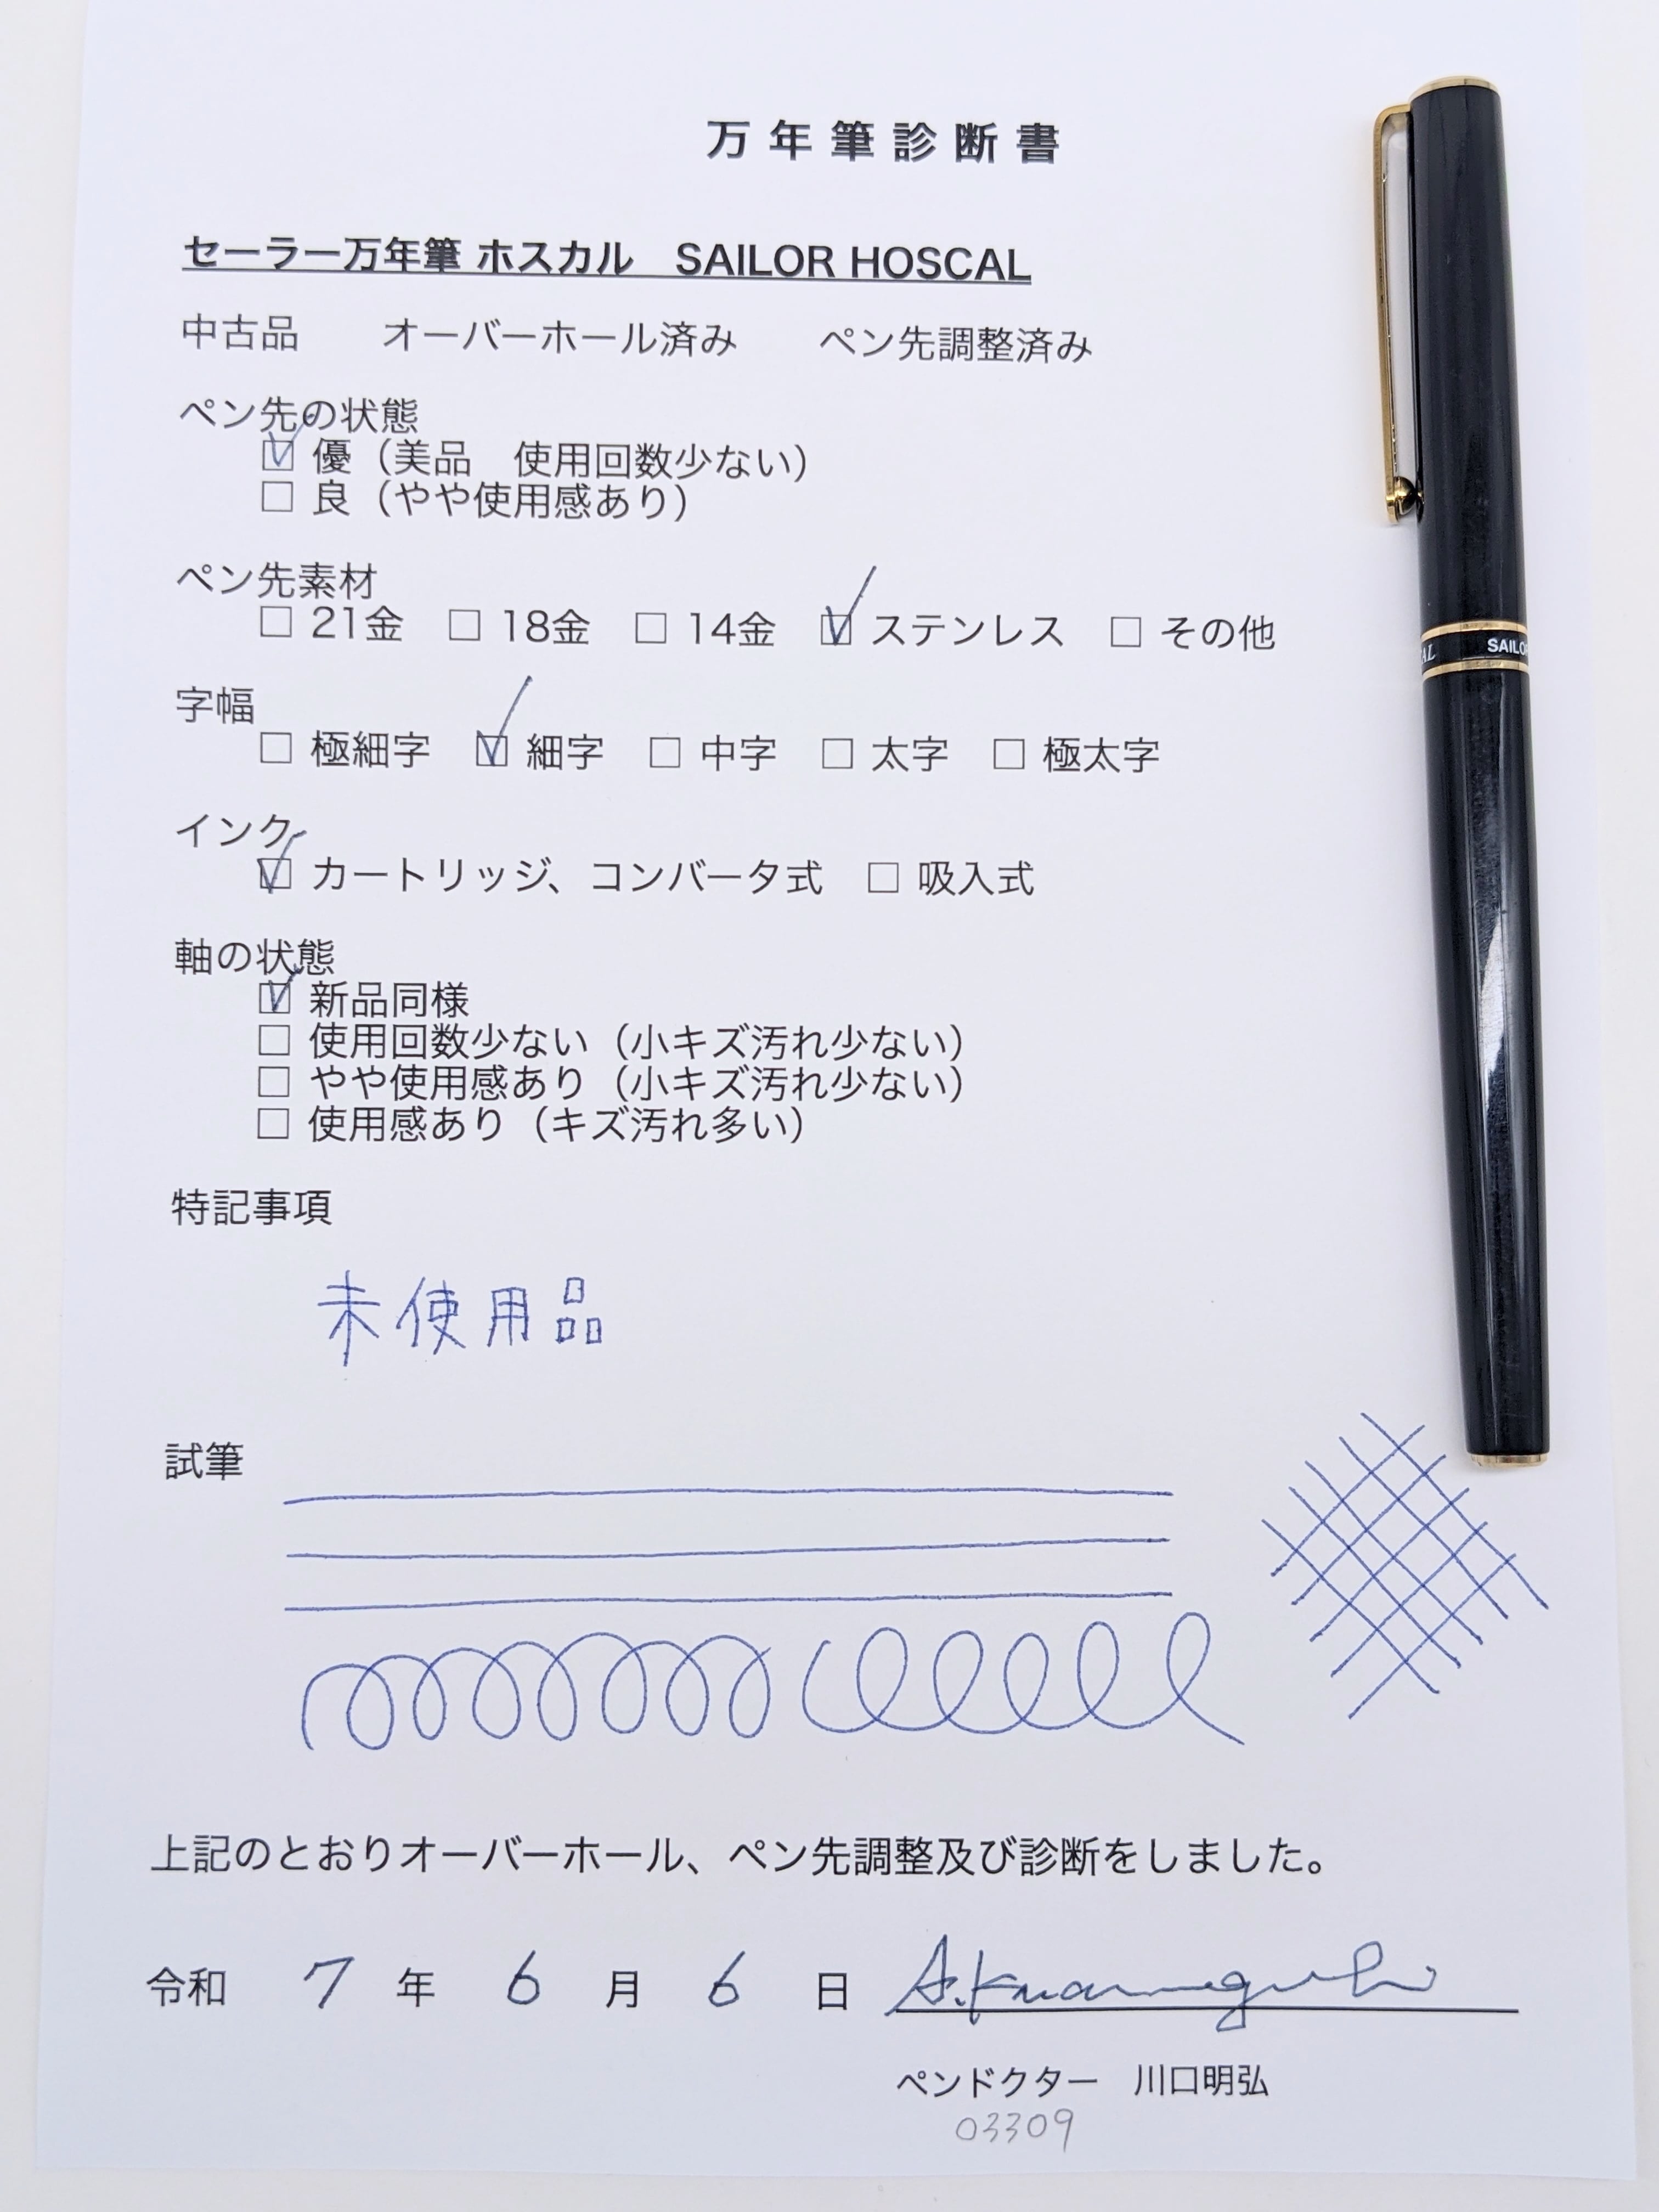 万年筆診断書
セーラー万年筆 ホスカル　SAILOR HOSCAL
中古品　　オーバーホール済み　　ペン先調整済み
ペン先の状態
☑ 優（美品　使用回数少ない）
☐ 良（やや使用感あり）
ペン先素材
☐ 21金　☐ 18金　☐ 14金　☑ ステンレス　☐ その他
字幅
☐ 極細字　☑ 細字　☐ 中字　☐ 太字　☐ 極太字
インク
☑ カートリッジ、コンバータ式　☐ 吸入式
軸の状態
☑ 新品同様
☐ 使用回数少ない（小キズ汚れ少ない）
☐ やや使用感あり（小キズ汚れ少ない）
☐ 使用感あり（キズ汚れ多い）
特記事項
未使用品
試筆
上記のとおりオーバーホール、ペン先調整及び診断をしました。
令和 7 年 6 月 6 日 A.Kawaguchi
ペンドクター　川口明弘
03309
AL SAILO